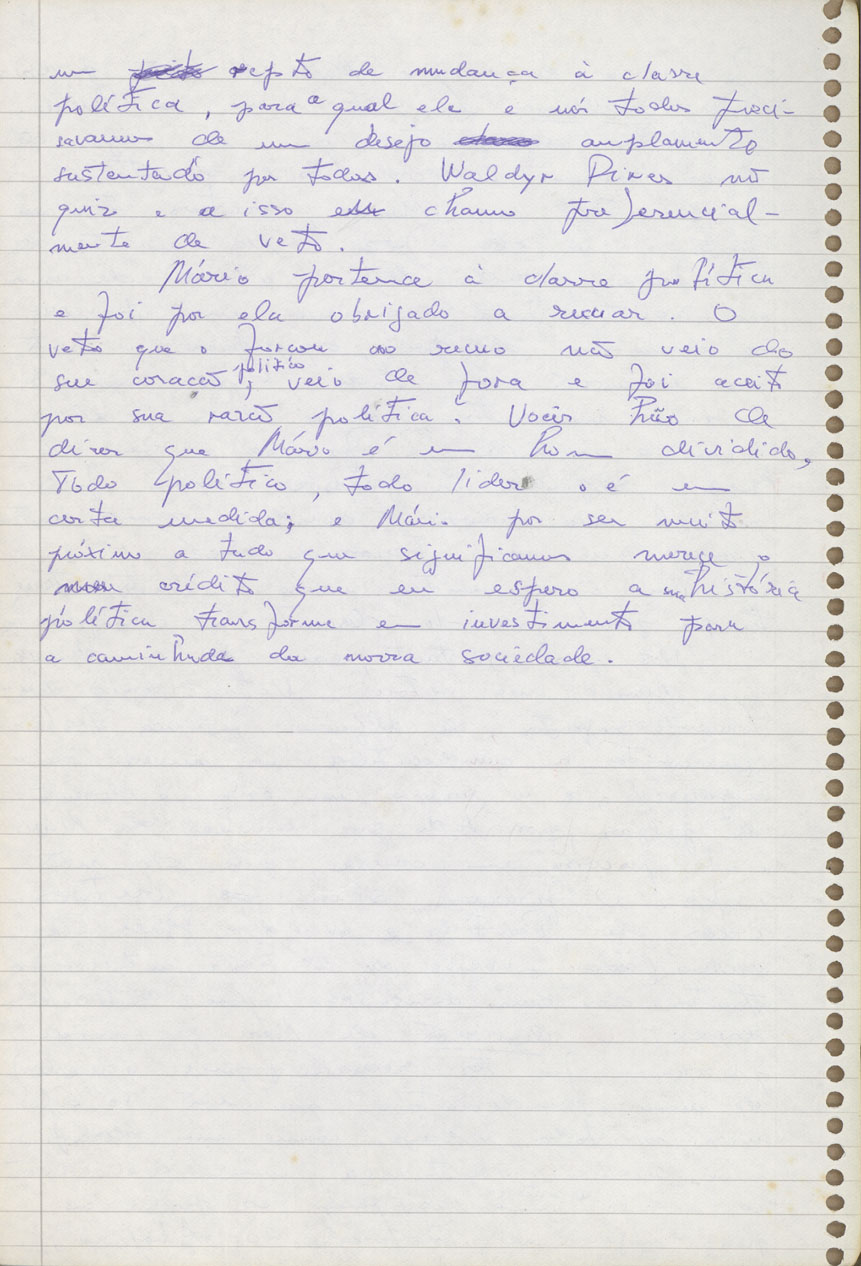 um repto de mudança à classe
política, para a qual ele e nós todos preci-
savamos de um desejo amplamente
sustentado por todos. Waldyr Pires não
quiz e a isso chamo preferencial-
mente de veto.
Mário pertence à classe política
e foi por ela obrigado a recuar. O
veto que o forçou ao recuo não veio do
seu coração político, veio de fora e foi aceito
por sua razão política. Vocês hão de
dizer que Mário é um homem dividido,
Todo político, todo lider o é em
certa medida; e Mário por ser muito
próximo a tudo que significamos merece o
crédito que eu espero a sua história
política transforme em investimento para
a caminhada da nossa sociedade.